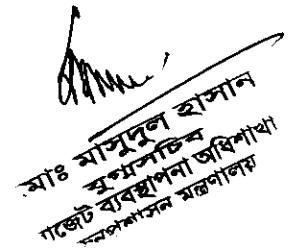 মাঃ মাসুদুল হাসান
যুগ্মসচিব
গজেট ব্যবস্থাপনা অধিশাখা
নপ্রশাসন মন্ত্রণালয়